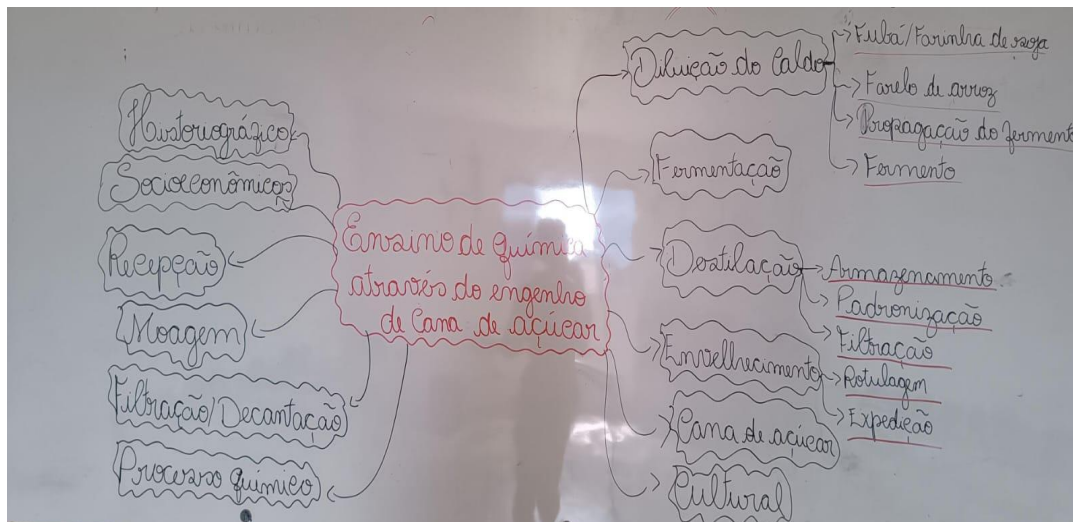 Historiográfico
Socioeconômicos
Recepção
Moagem
Filtração/Decantação
Processo químico
Ensino de química
através do engenho
de Cana de açúcar
Diluição do Caldo
Fubá/Farinha de soja
Farelo de arroz
Propagação do ferment
Fermento
Fermentação
Destilação
Armazenamento
Padronização
Filtração
Envelhecimento
Rotulagem
Expedição
Cana de açúcar
Cultural